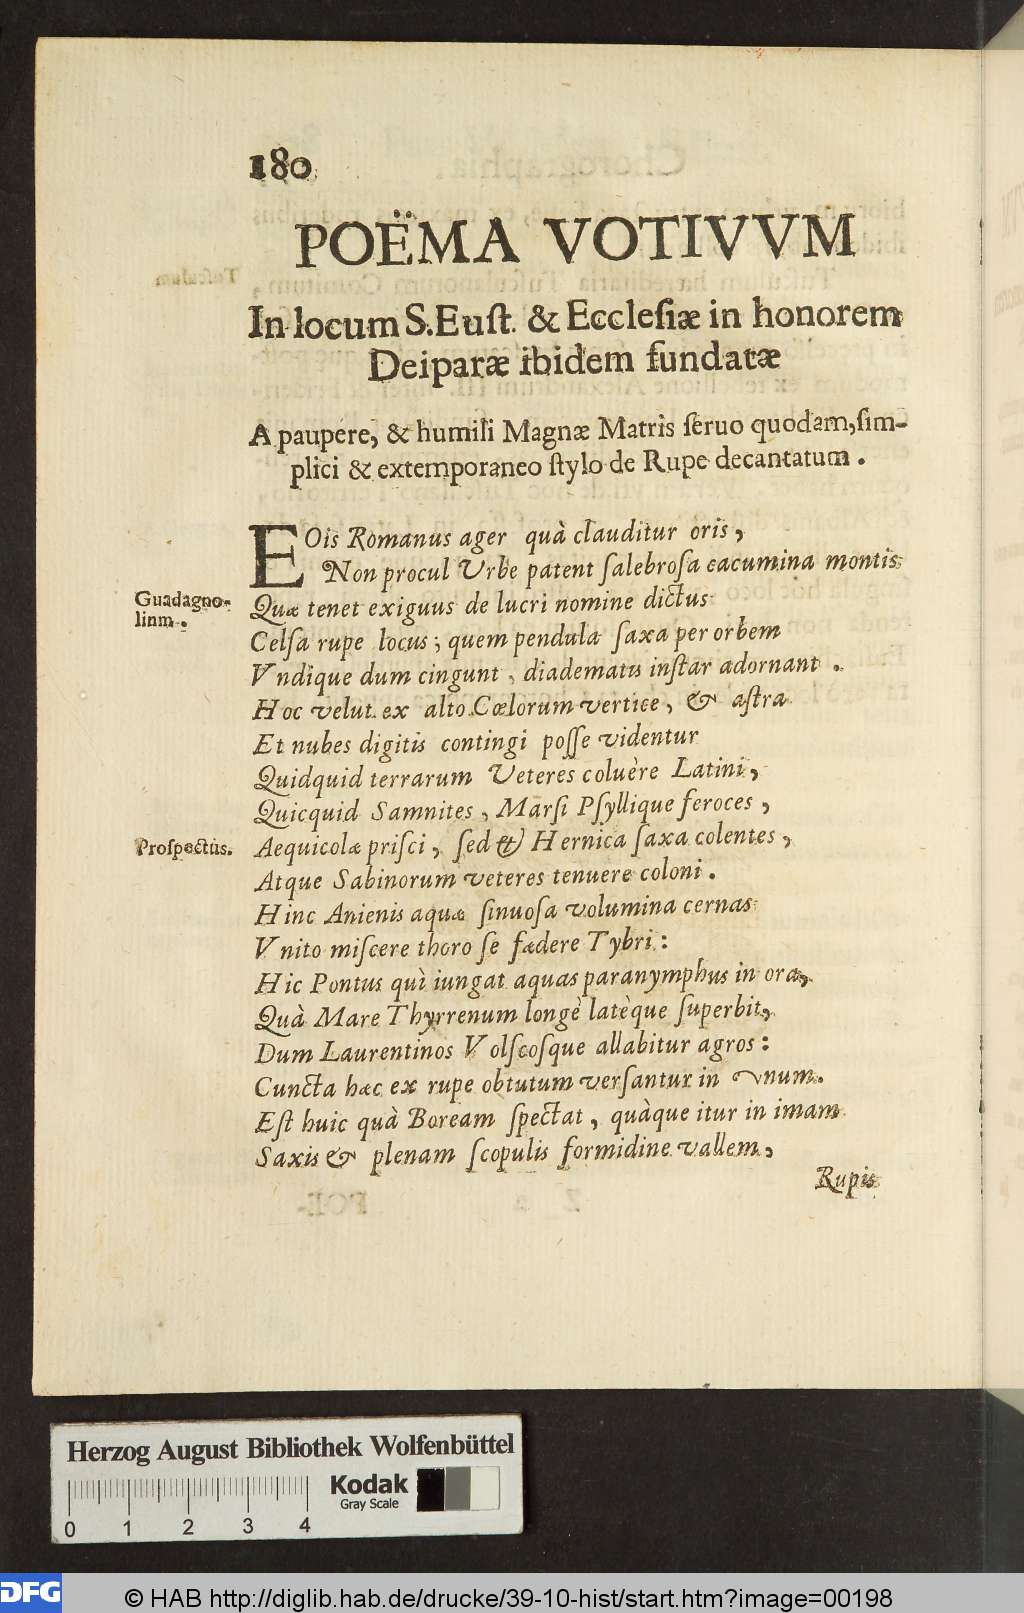 180
POËMA VOTIVVM
In locum S. Eust. & Ecclesiæ in honorem
Deiparæ ibidem fundatæ
A paupere, & humili Magnæ Matris ſeruo quodam, ſim-
plici & extemporaneo ſtylo de Rupe decantatum.
EOis Romanus ager quà clauditur oris,
Non procul Vrbe patent ſalebroſa cacumina montis
Guadagno-
linm.
Quæ tenet exiguus de lucri nomine dictus
Celſa rupe locus; quem pendula ſaxa per orbem
Vndique dum cingunt, diadematis inſtar adornant.
Hoc velut ex alto Cœlorum vertice, & aſtra
Et nubes digitis contingi poſſe videntur
Quidquid terrarum Veteres coluère Latini,
Quicquid Samnites, Marſi Pſyllique feroces,
Proſpectus.
Aequicolæ priſci, ſed & Hernica ſaxa colentes,
Atque Sabinorum veteres tenuere coloni.
Hinc Anienis aquæ ſinuoſa volumina cernas
Vnito miſcere thoro ſe fædere Tybri:
Hic Pontus quì iungat aquas paranymphus in ora,
Quà Mare Thyrrenum longè latèque ſuperbit,
Dum Laurentinos Volſcoſque allabitur agros:
Cuncta hæc ex rupe obtutum verſantur in vnum.
Eſt huic quà Boream ſpectat, quàque itur in imam
Saxis & plenam ſcopulis formidine vallem,
Rupis
Herzog August Bibliothek Wolfenbüttel
Kodak
Gray Scale
0 1 2 3 4
DFG
© HAB http://diglib.hab.de/drucke/39-10-hist/start.htm?image=00198